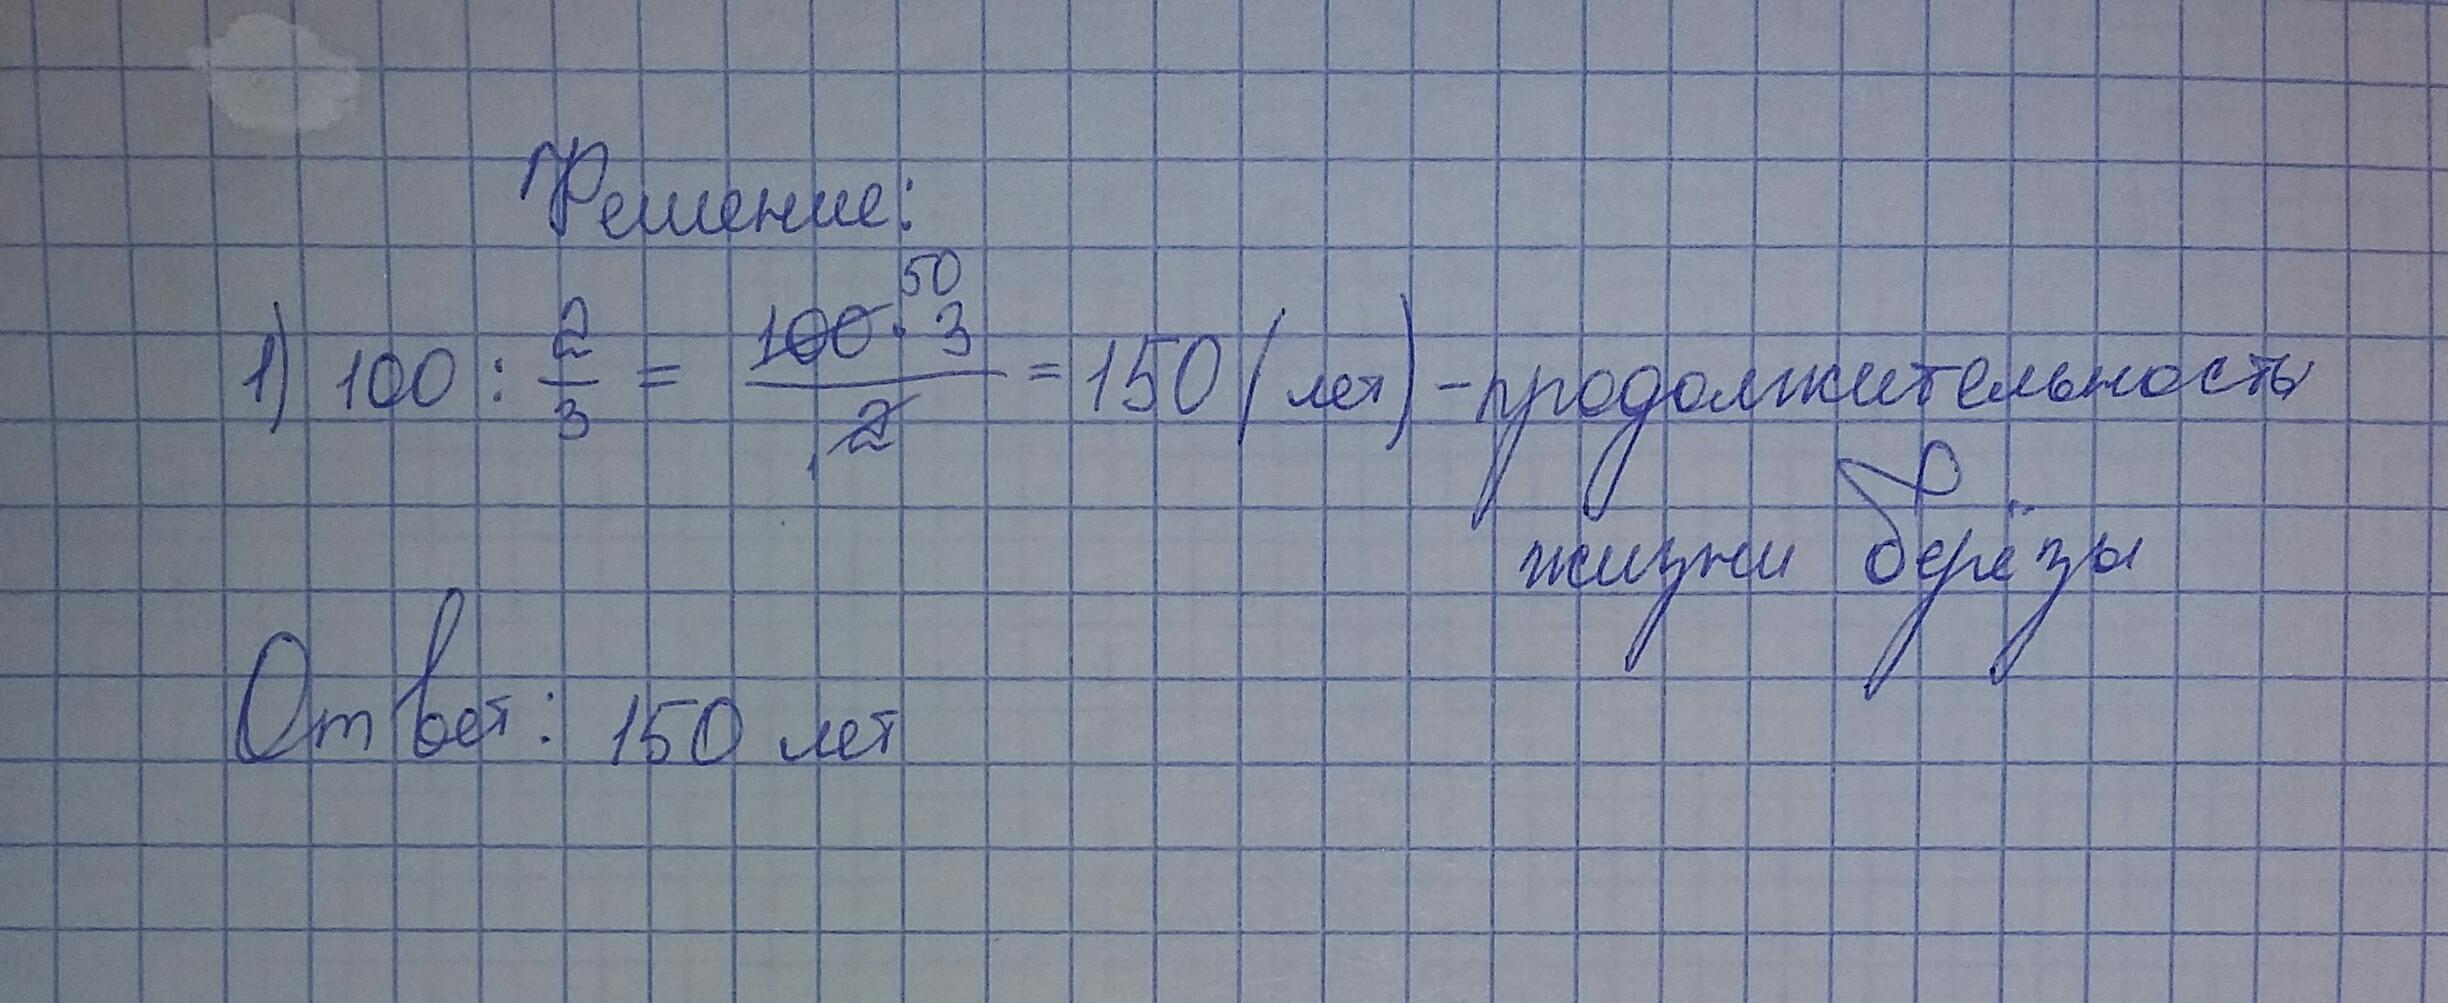 Решение:
1) 100 : 2/3 = 100 50 · 3 / 2 1 = 150 (лет) - продолжительность
жизни берёзы
Ответ: 150 лет